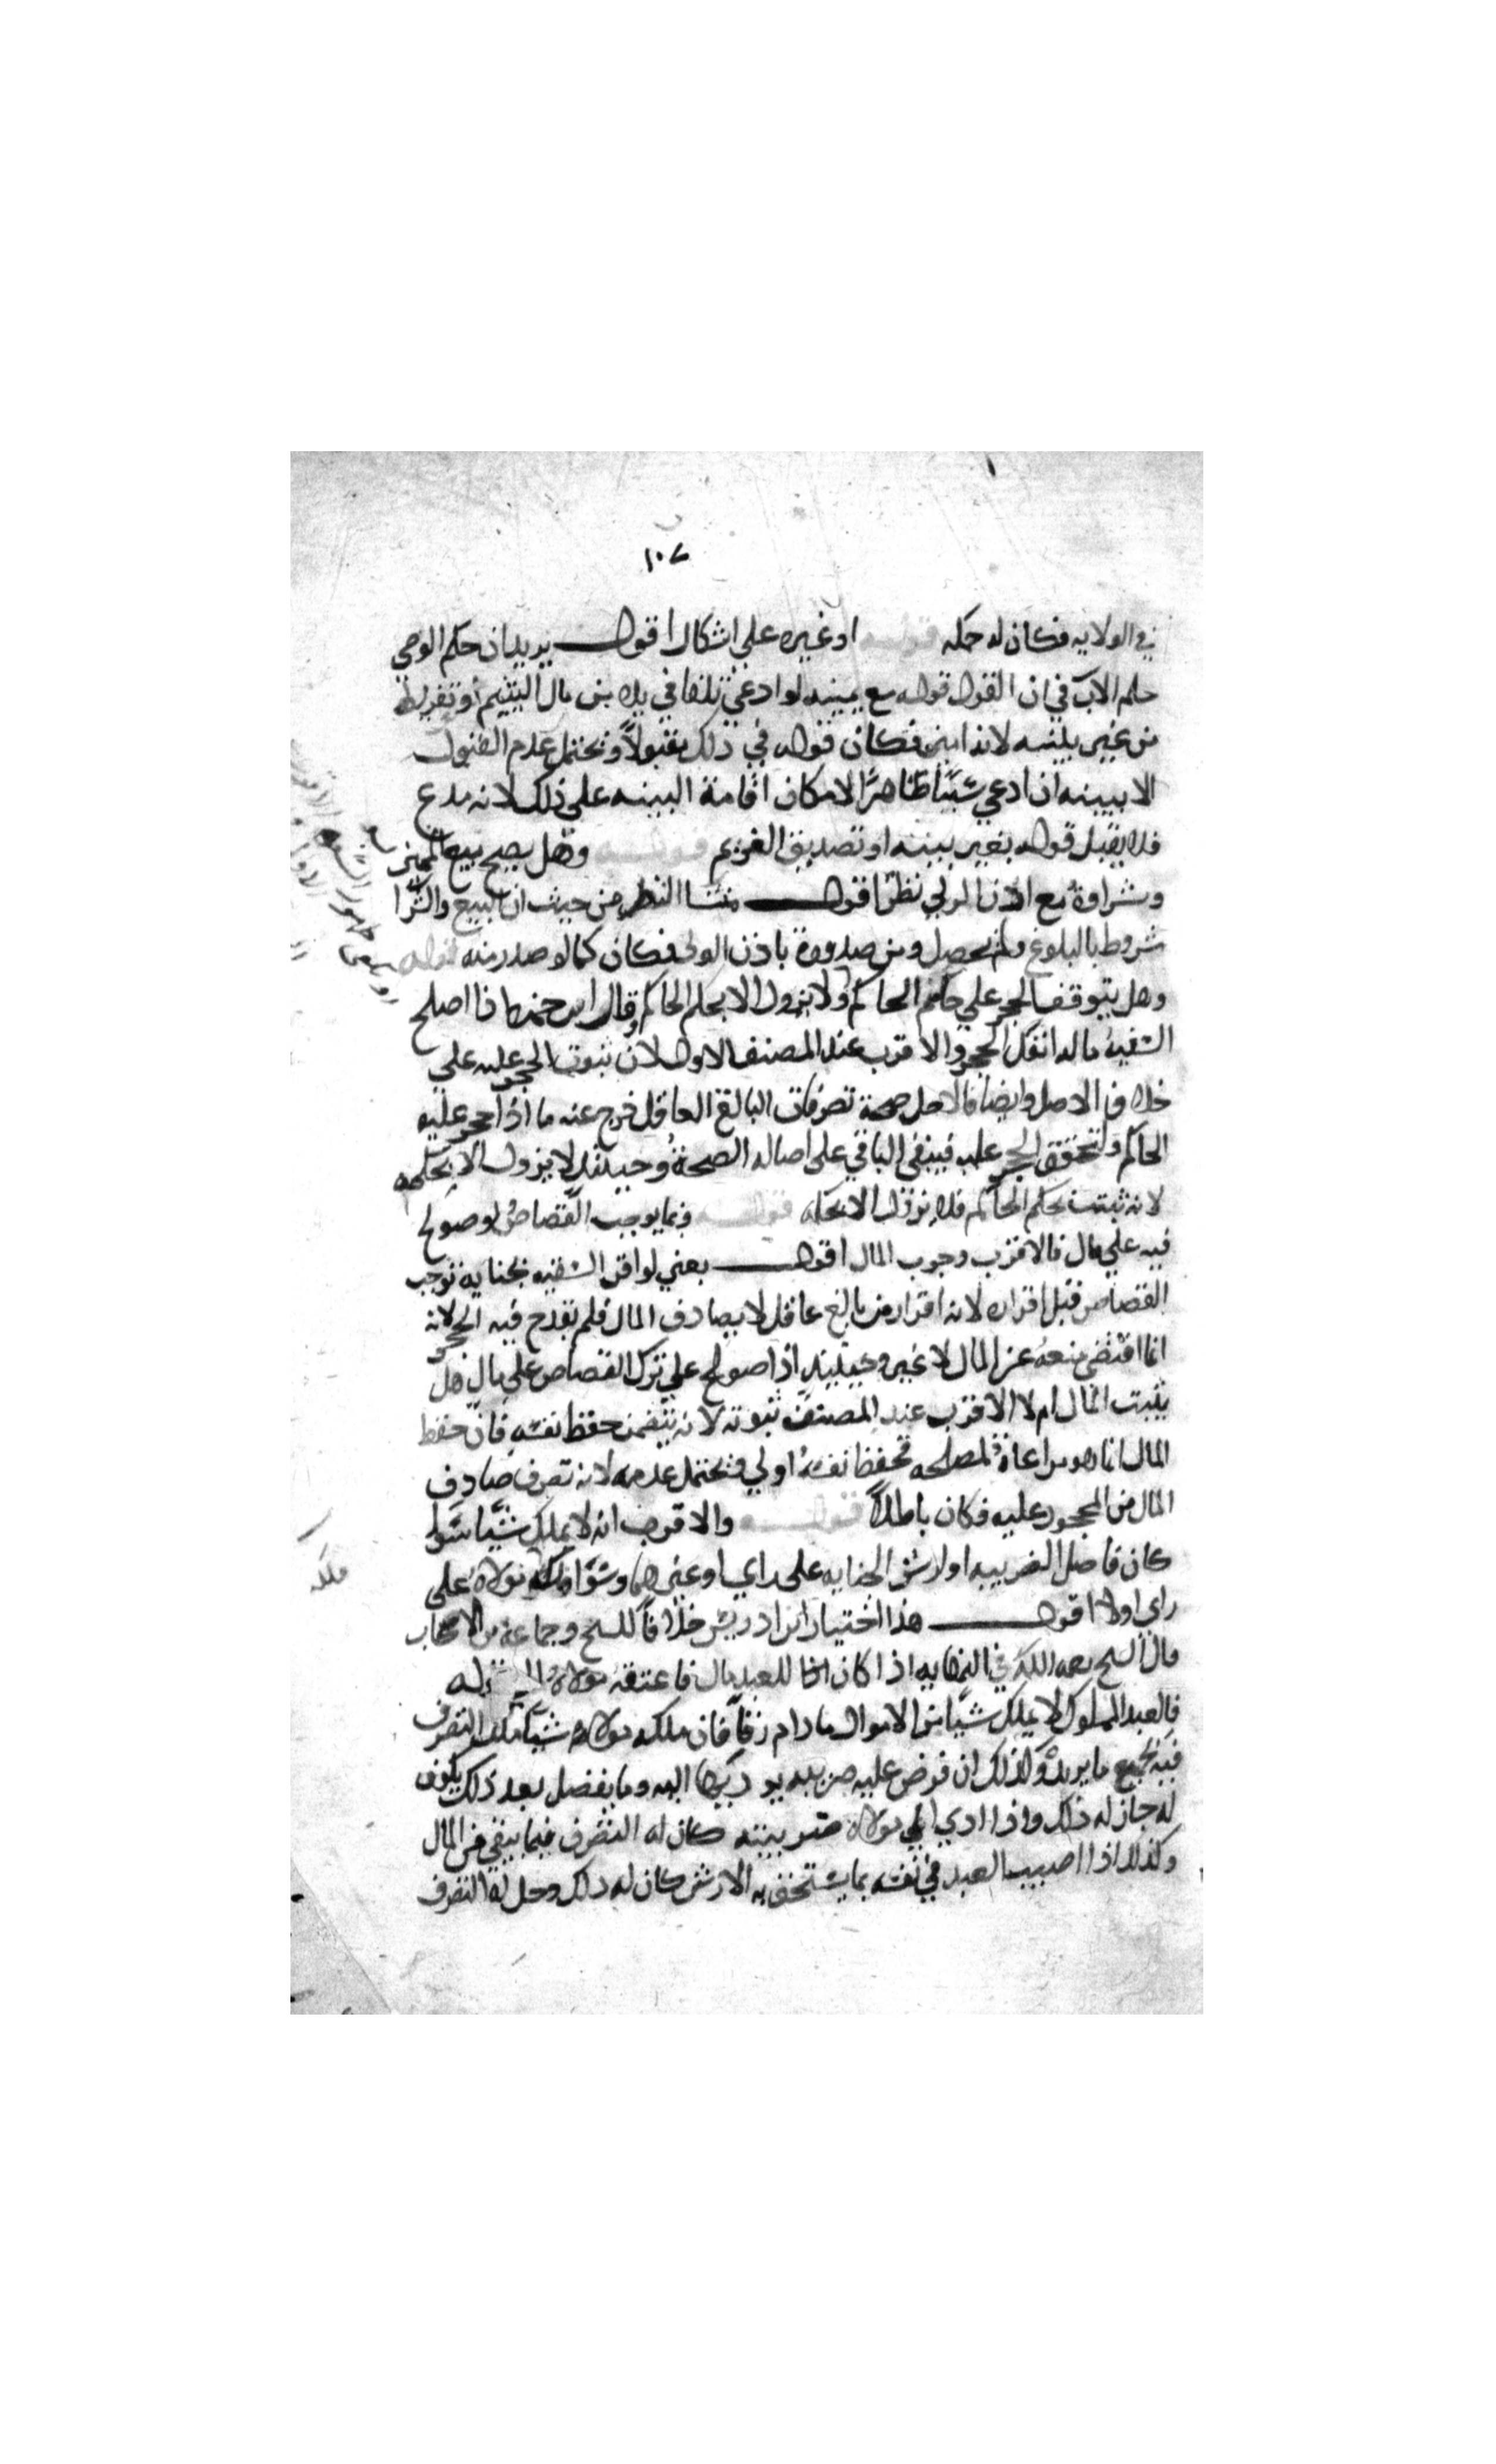 ١٠٧
في الولايه فكان له حكمه قوله او غيره على اشكال اقول يريد ان حكم الوصي
حكم الاب في ان القول قوله مع يمينه لو ادعي تلفا في يده من مال اليتيم او تفريط
من غير بينه لانه امين فكان قوله في ذلك مقبولاً ويحتمل عدم القبول
الا ببينه ان ادعي شيئا ظاهرًا لامكان اقامة البينه على ذلك لانه مدع
فلا يقبل قوله بغير بينه او تصديق الغريم قوله وهل يصح بيع المميز
وشراوه مع اذن الولي نظر اقول منشا النظر من حيث ان البيع والشرا
مشروط بالبلوغ ولم يحصل ومن صدوره باذن الولى فكان كما لو صدر منه قوله
وهل يتوقف الحجر علي حكم الحاكم ولا يزول الا بحكم الحاكم وقال ابن حمزه اذا اصلح
السفيه ماله انفك الحجر والاقرب عند المصنف الاول لان ثبوت الحجر عليه علي
خلاف الاصل وايضا فالاصل صحة تصرفات البالغ العاقل خرج عنه ما اذا حجر عليه
الحاكم ولتحقق الحجر عليه فيبقي الباقي على اصاله الصحة وحينئذ لا يزول الا بحكمه
لانه ثبت بحكم الحاكم فلا يزول الا بحكمه قوله وبما يوجب القصاص لو صولح
فيه على مال فالاقرب وجوب المال اقول يعني لو اقر السفيه بجنايه توجب
القصاص قبل اقراره لانه اقرار من بالغ عاقل لا يصادف المال فلم يقدح فيه الحجر لانه
انما اقتضي منعه عن المال لا غير وحينئذ اذا صولح علي ترك القصاص على مال هل
يثبت المال ام لا الاقرب عند المصنف ثبوته لانه يتضمن حفظ نفسه فان حفظ
المال انما هو مراعاة لمصلحه فحفظ نفسه اولي ويحتمل عدمه لانه تصرف صادف
المال من المحجور عليه فكان باطلاً قوله والاقرب انه لا يملك شيئا سوا
كان فاضل الضريبه او ارش الجنايه على راي او غيرهما وسوا ملكه مولاه على
راي اولا اقول هذا اختيار ابن ادريس خلافاً للشيخ وجماعه من الاصحاب
قال الشيخ رحمه الله في النهايه اذا كان للعبد مال فاعتقه مولاه
فالعبد المملوك لا يملك شيئا من الاموال ما دام رقاً فان ملكه مولاه شيئا ملك التصرف
فيه بجميع ما يريده وكذلك ان فرض عليه ضريبه يوديها اليه وما يفضل بعد ذلك يكون
له جاز له ذلك واذا ادي الي مولاه ضريبته كان له التصرف فيما يبقي من المال
وكذلك اذا اصيب العبد في نفسه بما يستحق به الارش كان له ذلك وحل له التصرف
ملكه